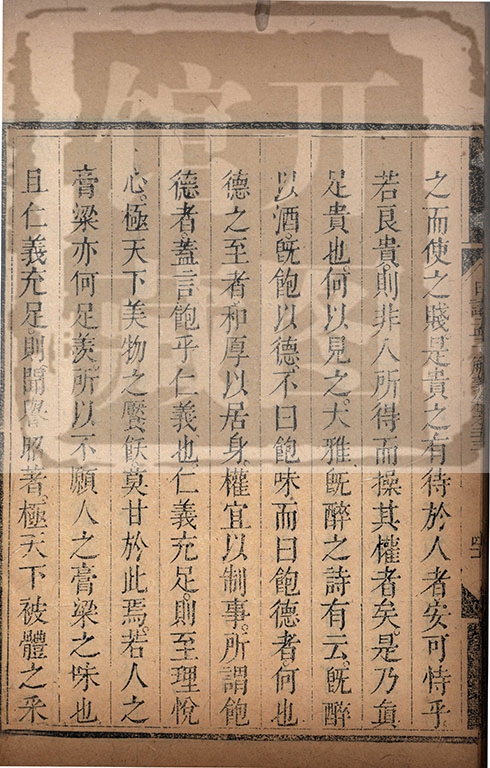 之而使之賤是貴之有待於人者安可恃乎
若良貴則非人所得而操其權者矣是乃真
足貴也何以見之大雅既醉之詩有云既醉
以酒既飽以德不曰飽味而曰飽德者何也
德之至者和厚以居身權宜以制事所謂飽
德者蓋言飽乎仁義也仁義充足則至理悅
心極天下美物之饜飫莫甘於此焉若人之
膏粱亦何足羨所以不願人之膏粱之味也
且仁義充足則聞譽昭著極天下被體之采